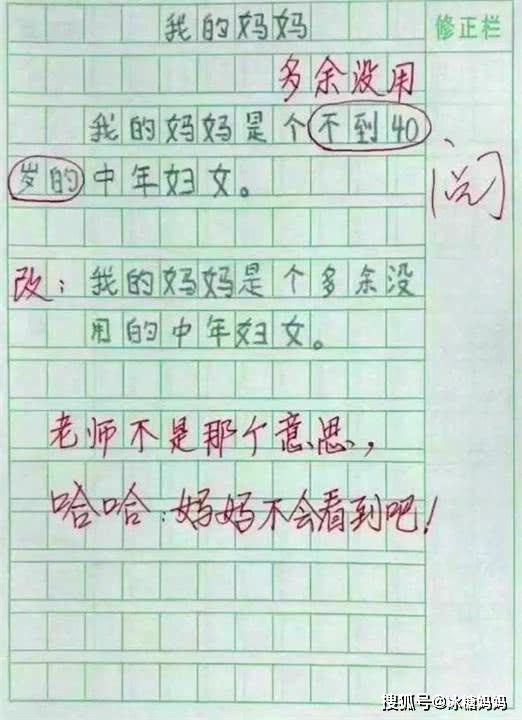 我的妈妈
修正栏
多余没用
我的妈妈是个不到40
岁的中年妇女。
阅
改：我的妈妈是个多余没
用的中年妇女。
老师不是那个意思，
哈哈：妈妈不会看到吧！
搜狐号@冰糖妈妈